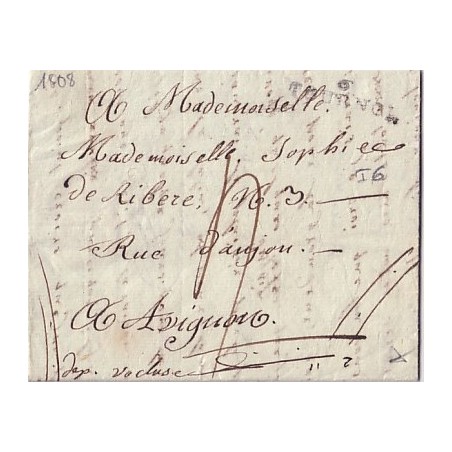 1808
A Mademoiselle.
Mademoiselle, Sophie
de Ribere. N. 3.
56
Rue d'anjou.
A Avignon.
dep. vocluse